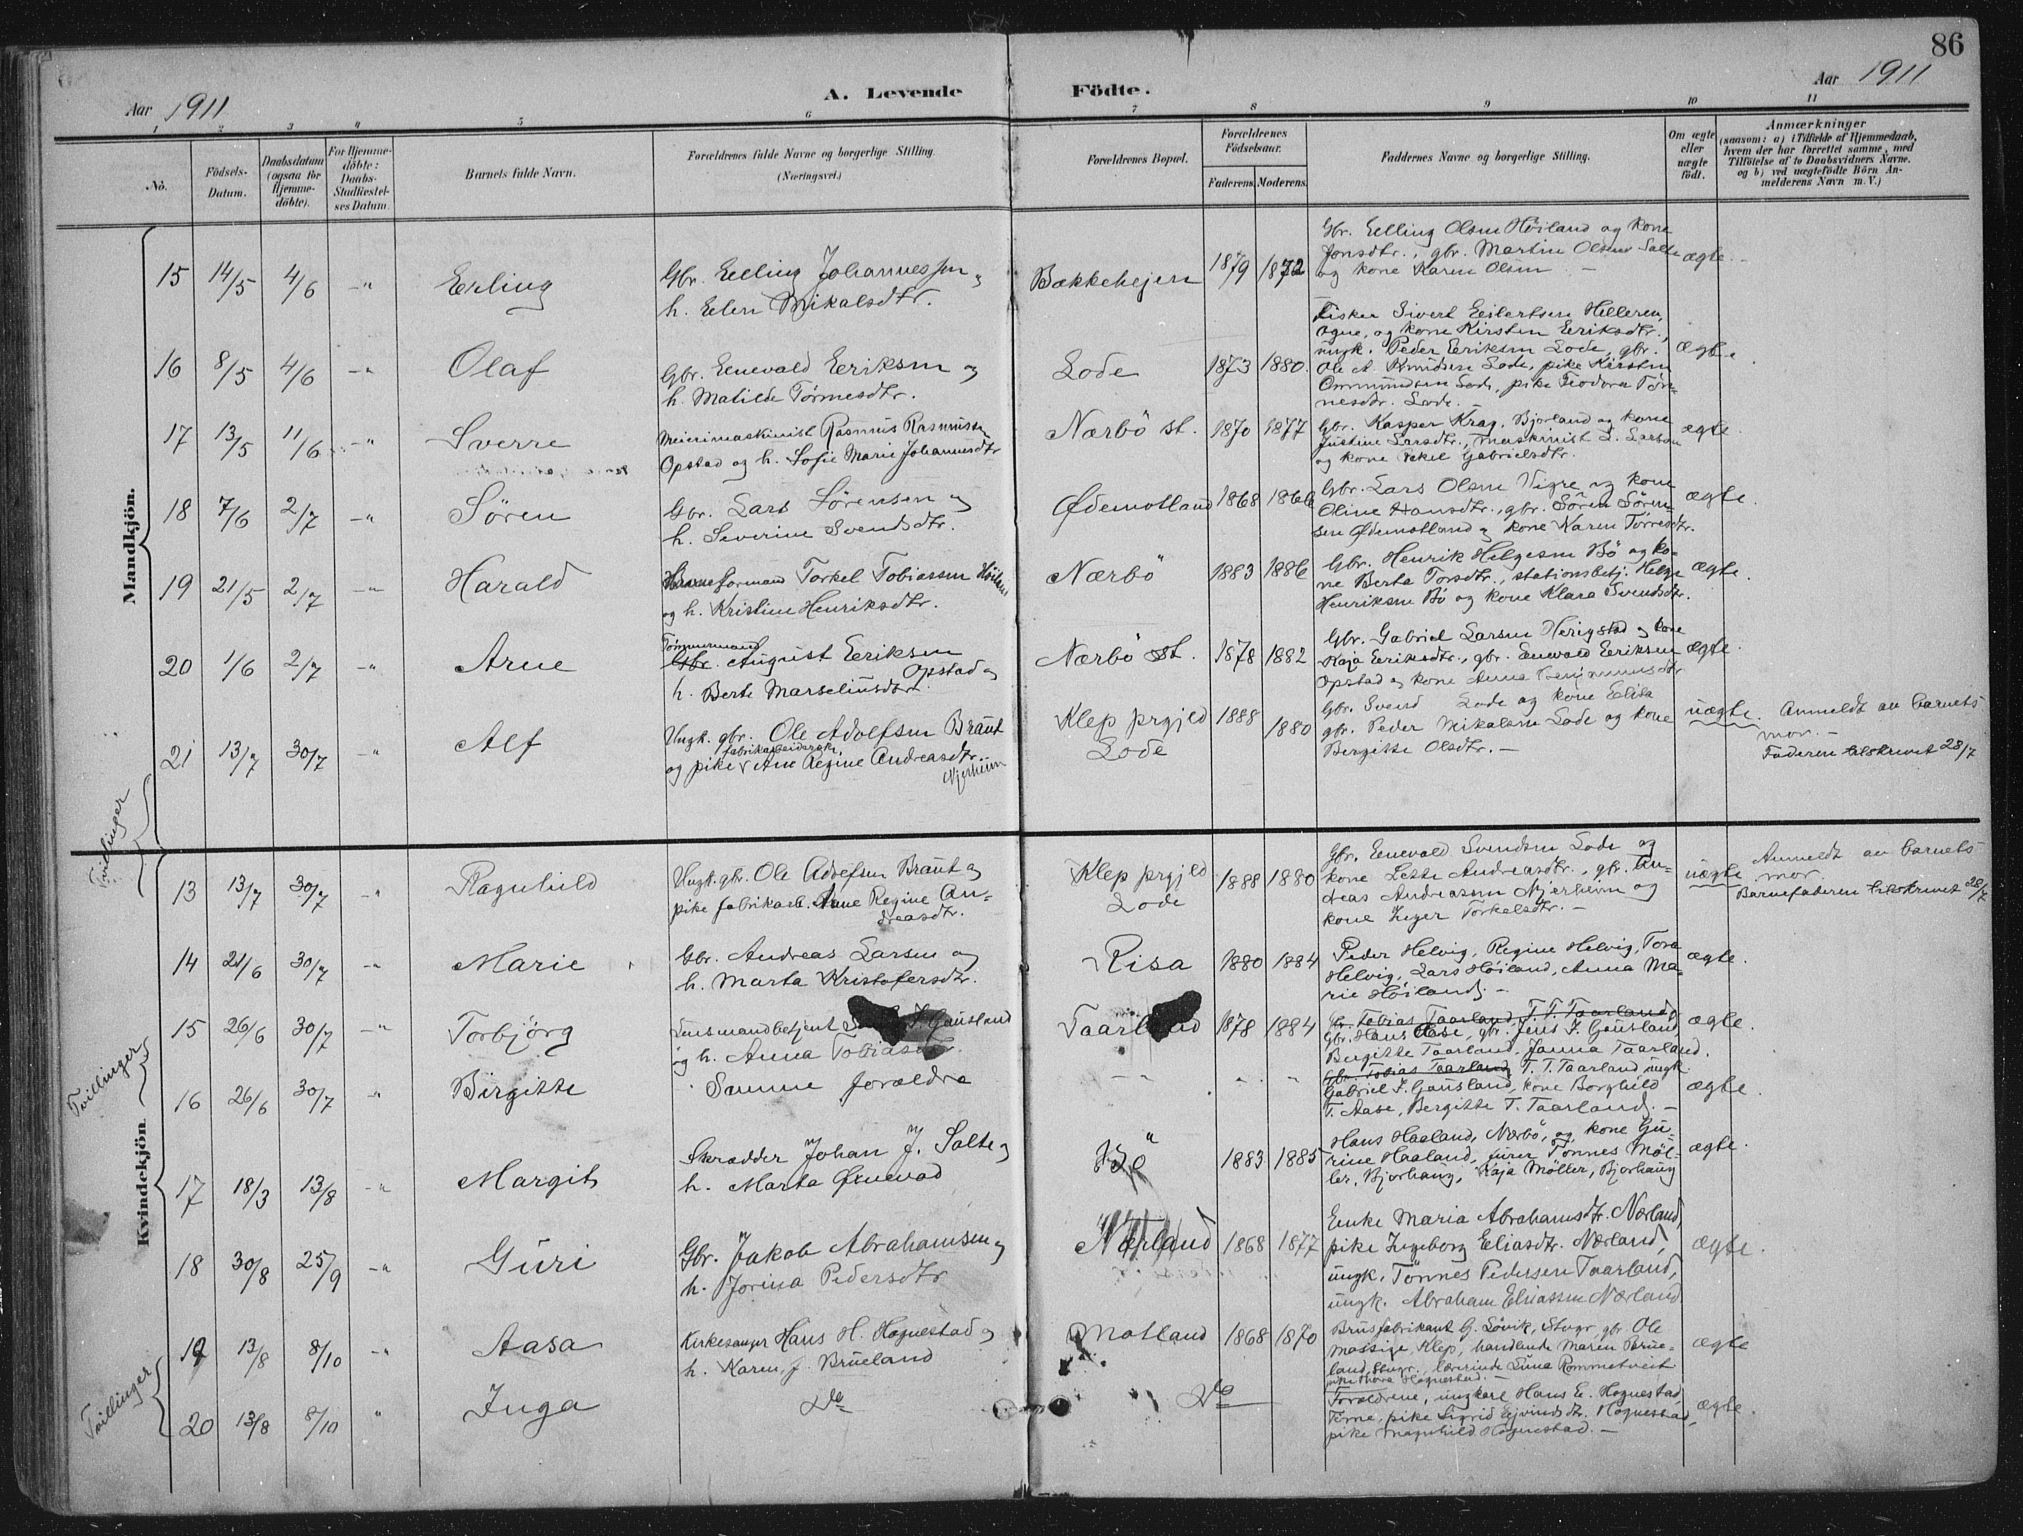 86
Aar 1911
A. Levende Födte.
Aar 1911
1 2 3 4 5 6 7 8 9 10 11
No.
Födsels-Datum.
Daabsdatum (ogsaa for Hjemmedöbte).
For Hjemmedöbte: Daabs-Stadfæstelses Datum.
Barnets fulde Navn.
Forældrenes fulde Navne og borgerlige Stilling.
(Næringsvei.)
Forældrenes Bopæl.
Forældrenes Fødselsaar.
Faderens. Moderens.
Faddernes Navne og borgerlige Stilling.
Om ægte eller uægte födt.
Anmærkninger
(saasom: a) i Tilfælde af Hjemmedaab,
hvem der har forrettet samme, med
Tilföielse af to Daabsvidners Navne.
og b) ved uægtefödte Börn An-
melderens Navn m. V.)
Mandkjön.
15 14/5 4/6 -"- Erling
Gbr. Elling Johannessen og
h. Elen Mikalsdtr.
Bakkehejen 1879 1872
Gbr. Elling Olsen Höiland og kone
Jonsdtr., gbr. Martin Olsen Salte
og kone Karen Olsen —
ægte.
16 8/5 4/6 -"- Olaf
Gbr. Enevald Eriksen og
h. Matilde Tönnesdtr.
Lode 1873 1880.
Fisker Sivert Eilertsen Helleren,
Ogne, og kone Kirsten Eriksdtr.,
ungk. Peder Eriksen Lode, gbr.
Ole A. Knudsen Lode, pike Kirstin
Ommundsen Lode, pike Teodora Tön-
nesdtr. Lode.
ægte
17 13/5 11/6 -"- Sverre
Meierimaskinist Rasmus Rasmussen
Opstad og h. Sofie Marie Johannesdtr
Nærbö st. 1870 1877
Gbr. Kasper Krag, Bjorland og kone
Justine Larsdtr., maskinist L. Larsen
og kone Gabrielsdtr.
ægte.
18 7/6 2/7 -"- Sören
Gbr. Lars Sörensen og
h. Severine Svendsdtr.
Ødemotland 1868 1866
Gbr. Lars Olsen Vigre og kone
Oline Hansdtr., gbr. Sören Sören-
sen Ødemotland og kone Karen Torresdtr.
ægte.
19 21/5 2/7 -"- Harald
formand Torkel Tobiassen Höiland
og h. Kristine Henriksdtr.
Nærbö 1883 1886
Gbr. Henrik Helgesen Bö og ko-
ne Berta Torsdtr., stationsbetj. Helge
Henriksen Bö og kone Klara Svendsdtr.
ægte.
20 1/6 2/7 -"- Arne
Tömmermand
Gbr. August Eriksen
Opstad og
h. Berte Marseliusdtr.
Nærbö st. 1878 1882
Gbr. Gabriel Larsen Herigstad og kone
Kaja Eriksdtr., gbr. Enevald Eriksen
Opstad og kone Anna
ægte.
21 13/7 30/7 -"- Alf
Ungk. gbr. Ole Adolfsen Braut
fabrikarbeiderske
og pike Ane Regine Andreasdtr.
Njærheim
Klep prgjeld
Lode
1888 1880
Gbr. Svend Lode og kone Elisa
gbr. Peder Mikalsen Lode og kone
Bergitte Olsdtr. —
uægte.
Anmeldt av barnets
mor. —
Faderen tilskrevet 28/7
Tvillinger
Kvindekjön.
13 13/7 30/7 " Ragnhild
Ungk. gbr. Ole Adolfsen Braut og
pike fabrikarb. Anne Regine An-
dreasdtr.
Klep prgjeld
Lode
1888 1880
Gbr. Enevald Svendsen Lode og
kone Lette Andreasdtr., gbr. An-
dreas Andreassen Njærheim og
kone Inger Torkelsdtr. —
uægte
Anmeldt av barnets
mor.
Barnefaderen tilskrevet 28/7
14 21/6 30/7 -"- Marie
Gbr. Andreas Larsen og
h. Marta Kristofersdtr.
Risa 1880 1884
Peder Helvig, Regine Helvig, Tora
Helvig, Lars Höiland, Anna Ma-
rie Höiland. —
ægte.
Tvillinger
15 26/6 30/7 -"- Torbjörg
Lensmandbetjent J. Gausland
og h. Anna Tobiasdtr.
Taarland 1878 1884
Gbr. Tobias Taarland, T. T. Taarland,
Gbr. Hans Aase, gbr. Jens J. Gausland
Bergitte Taarland, Janna Taarland.
ægte.
16 26/6 30/7 " Birgitte
Samme forældre
— " — " "
Gbr. Tobias Taarland, T. T. Taarland, ungk.
Gabriel J. Gausland, kone Borghild
T. Aase, Bergitte T. Taarland. —
ægte.
17 18/3 13/8 -"- Margit
Skrædder Johan J. Salte og
h. Marta Ørnevad
Bö 1883 1885
Hans Haaland, Nærbö, og kone Gu-
rine Haaland, Tönnes Möl-
ler, Bjorhaug, Kaja Möller, Bjorhaug
ægte.
18 30/8 25/9 -"- Guri
Gbr. Jakob Abrahamsen og
h. Jorina Pedersdtr
Nærland 1868 1877
Enke Maria Abrahamsdtr. Nærland,
pike Ingeborg Eliasdtr. Nærland,
ungk. Tönnes Pedersen Taarland,
ungk. Abraham Eliassen Nærland
ægte.
Tvillinger
19 13/8 8/10 -"- Aasa
Kirkesanger Hans H. Hognestad og
h. Karen J. Brueland
Motland 1868 1870
Brusfabrikant G. Lövik, Stvgr, gbr. Ole
Massige, Klep, handlende Maren Brue-
land, Stvgr., lærerinde Lina Rommetveit
pike Thora Hognestad. —
ægte
20 13/8 8/10 " Inga
Do
Do
Forældrene, ungkarl Hans E. Hognestad,
Time, pike Sigrid Ejvindsdtr. Hognestad,
pike Magnhild Hognestad. —
ægte.